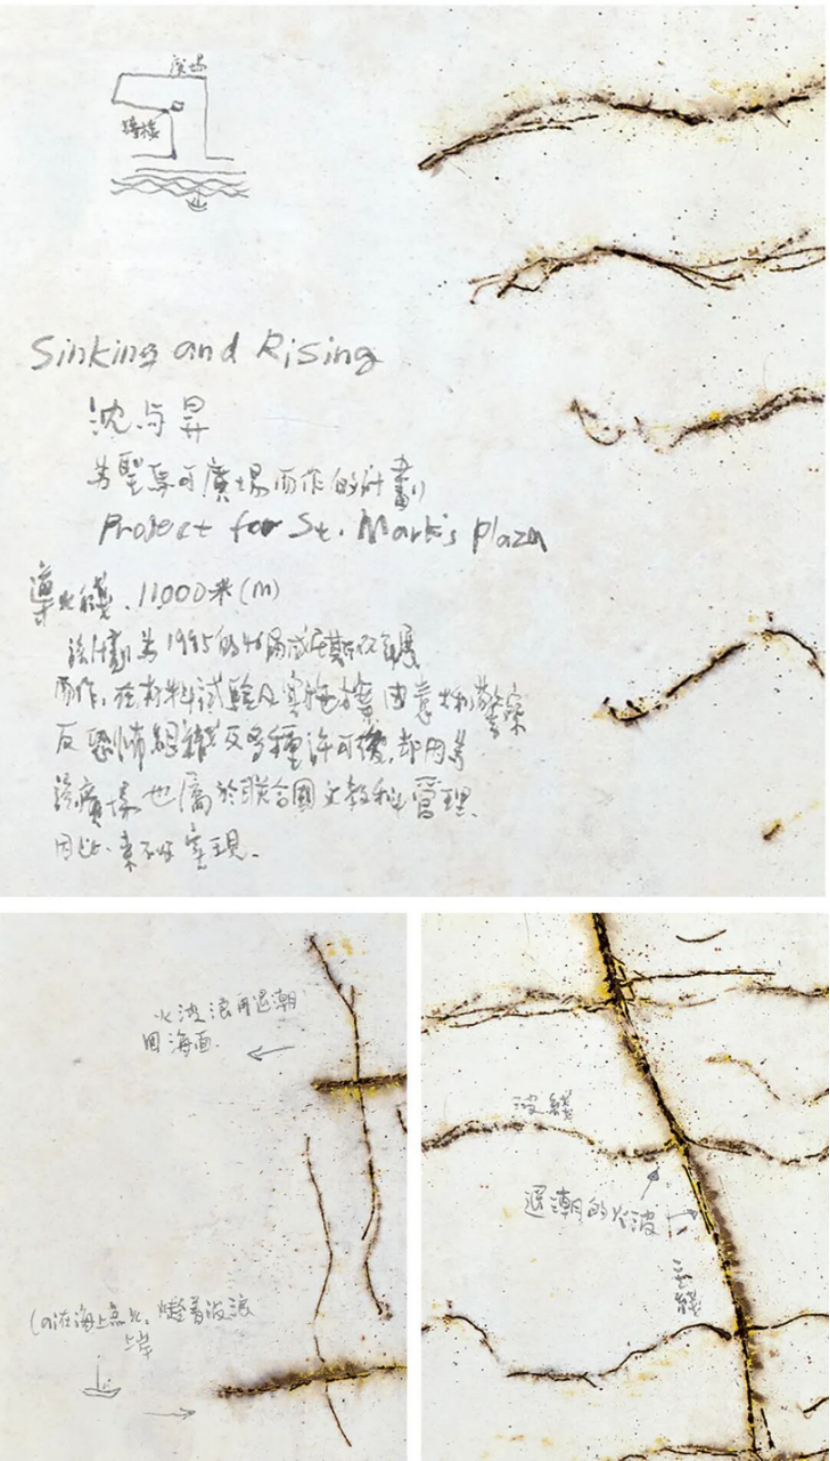 廣場
鐘樓
Sinking and Rising
沈与昇
為聖馬可廣場而作的計劃
Project for St. Mark's Plaza
導火線. 11,000米(m)
該計劃為1995的46屆威尼斯双年展
而作, 在材料試驗及實施方案由意大利警察
反恐怖組織及多種許可後, 却因為
該廣場也屬於联合國文教科管理.
因此.未好實現.
火波浪再退潮
回海面.
波線
退潮的火波
主線
(a)在海上點火. 燃着波浪
上岸